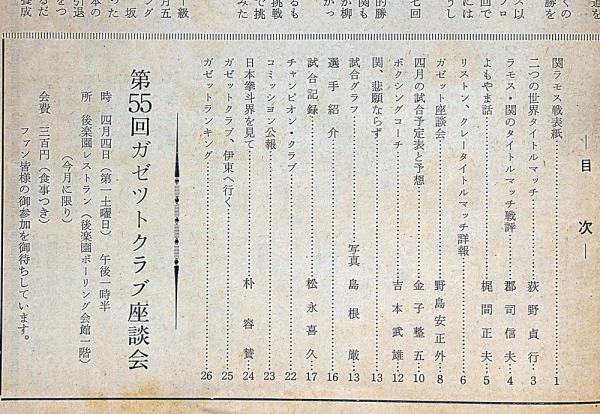 ―目次―
関ラモス戦表紙……1
二つの世界タイトルマッチ……荻野貞行……3
ラモス・関のタイトルマッチ戦評……郡司信夫……4
よもやま話……梶間正夫……5
リストン、クレータイトルマッチ詳報……6
ガゼット座談会……野島安正外……8
四月の試合予定表と予想……金子整五……10
ボクシングコーチ……吉本武雄……12
関、悲願ならず……13
試合グラフ……写真 島根厳……13
選手紹介……16
試合記録……松永喜久……17
チャンピオン・クラブ……22
コミッション公報……23
日本拳斗界を見て……朴容賛……24
ガゼットクラブ、伊東へ行く……25
ガゼットランキング……26
第55回ガゼツトクラブ座談会
時 四月四日(第一土曜日) 午後一時半
所 後楽園レストラン(後楽園ボーリング会館一階)
(今月に限り)
会費 三百円(食事つき)
ファン皆様の御参加を御待ちしています。